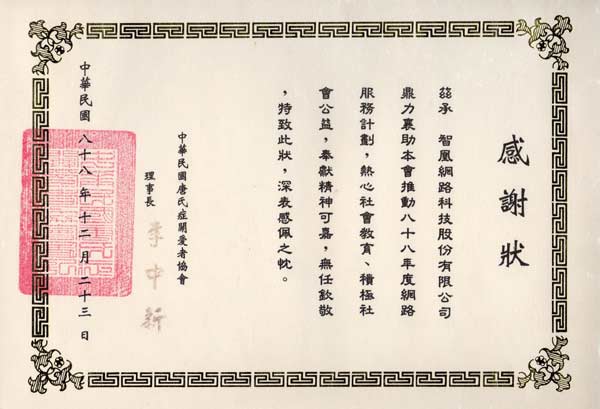 感謝狀
茲承　智凰網路科技股份有限公司
鼎力襄助本會推動八十八年度網路
服務計劃，熱心社會教育、積極社
會公益，奉獻精神可嘉，無任欽敬
，特致此狀，深表感佩之忱。
中華民國唐氏症關愛者協會
理事長　李中新
中華民國八十八年十二月二十三日